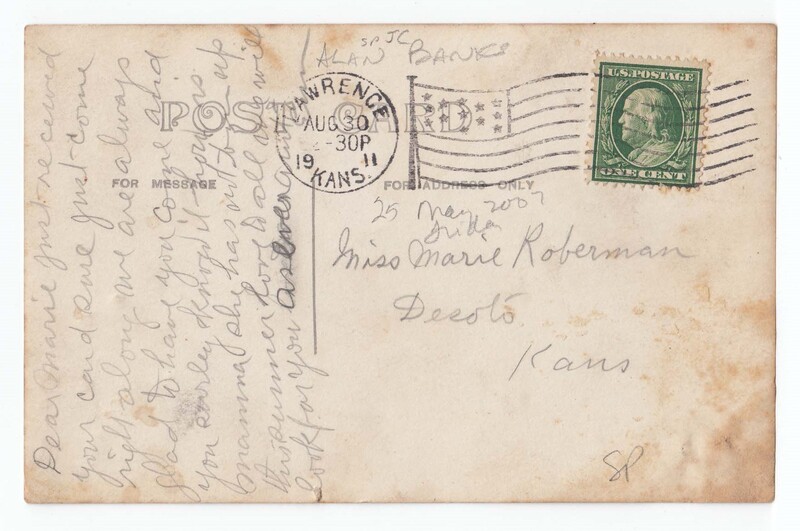 Dear Marie Just received
your card sure Just come
right along we are always
glad to have you come and
you surley know it
mamma she has not been up
this summer love to all and will
look for you as ever
ALAN SP JC BANKS
POST CARD
FOR MESSAGE
FOR ADDRESS ONLY
LAWRENCE
AUG 30
-30P
19 11
KANS.
U.S. POSTAGE
ONE CENT
25 May 2007
Friday
Miss Marie Roberman
Desoto
Kans
SP